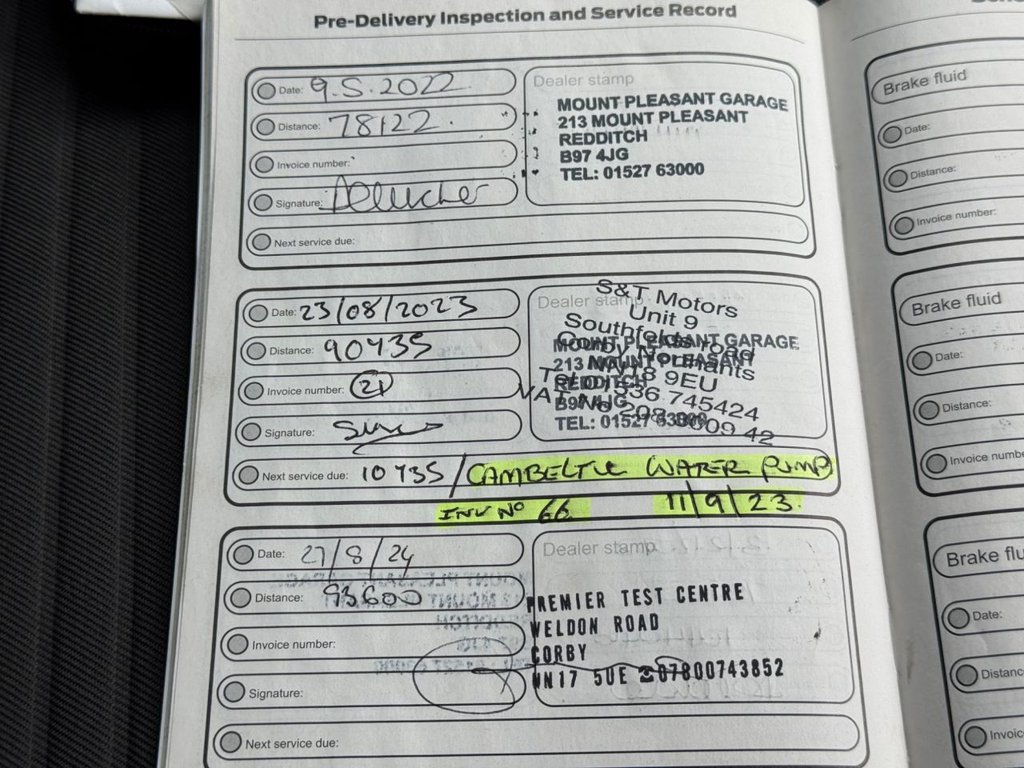 Pre-Delivery Inspection and Service Record
Date: 9.5.2022
Distance: 78122.
Invoice number:
Signature:
Next service due:
Dealer stamp
MOUNT PLEASANT GARAGE
213 MOUNT PLEASANT
REDDITCH
B97 4JG
TEL: 01527 63000
Date: 23/08/2023
Distance: 90435
Invoice number: 21
Signature:
Next service due: 10435 / CAMBELT & WATER PUMP
INV No 66 11/9/23.
Dealer stamp
S&T Motors
Unit 9
MOUNT PLEASANT GARAGE
213 MOUNT PLEASANT
REDDITCH
TEL: 01527 63000
Date: 27/8/24
Distance: 93600
Invoice number:
Signature:
Next service due:
Dealer stamp
PREMIER TEST CENTRE
WELDON ROAD
CORBY
NN17 5UE ☎07800743852
Brake fluid
Date:
Distance:
Invoice number:
Brake fluid
Date:
Distance:
Invoice numbe
Brake flu
Date:
Distanc
Invoic